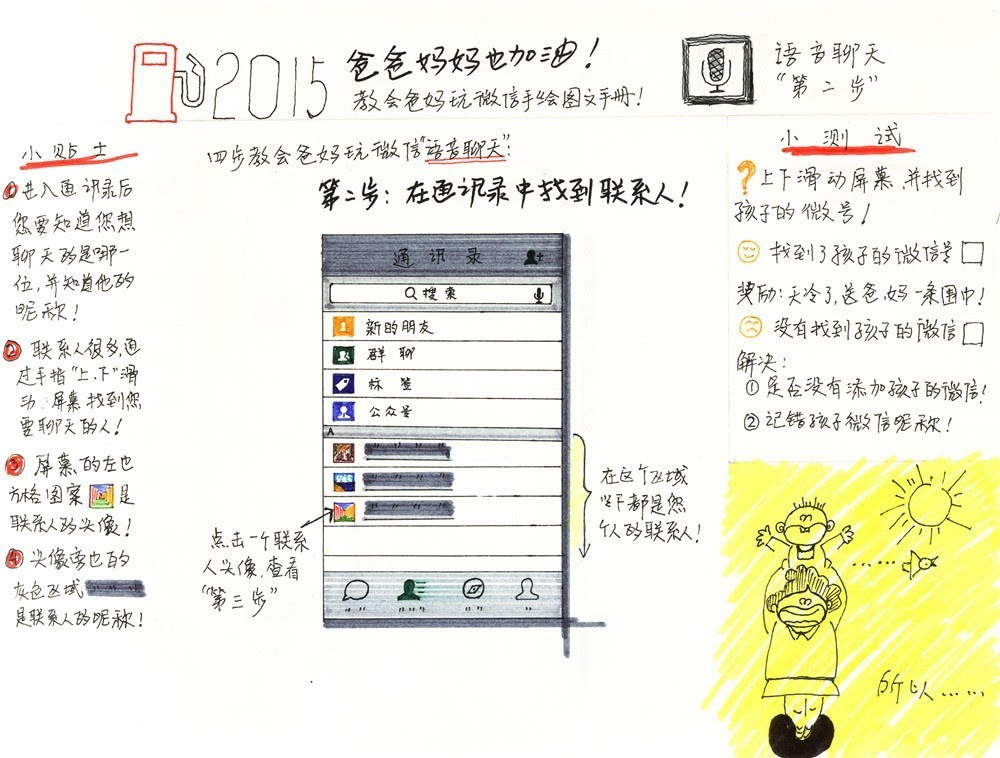 2015
爸爸妈妈也加油!
教会爸妈玩微信手绘图文手册!
语音聊天
“第二步”
四步教会爸妈玩微信“语音聊天”:
第二步:在通讯录中找到联系人!
小贴士
①进入通讯录后
您要知道您想
聊天的是哪一
位,并知道他的
昵称!
② 联系人很多,通
过手指“上、下”滑
动 屏幕找到您
要聊天的人!
③ 屏幕的左边
方格图案 是
联系人的头像!
④ 头像旁边的
灰色区域
是联系人的昵称!
通讯录
搜索
新的朋友
群聊
标签
公众号
A
点击一个联系
人头像,查看
“第三步”
在这个区域
以下都是您
个人的联系人!
小测试
?上下滑动屏幕,并找到
孩子的微号!
找到了孩子的微信号
奖励:天冷了,送爸、妈一条围巾!
没有找到孩子的微信
解决:
①是否没有添加孩子的微信!
②记错孩子微信昵称!
所以……